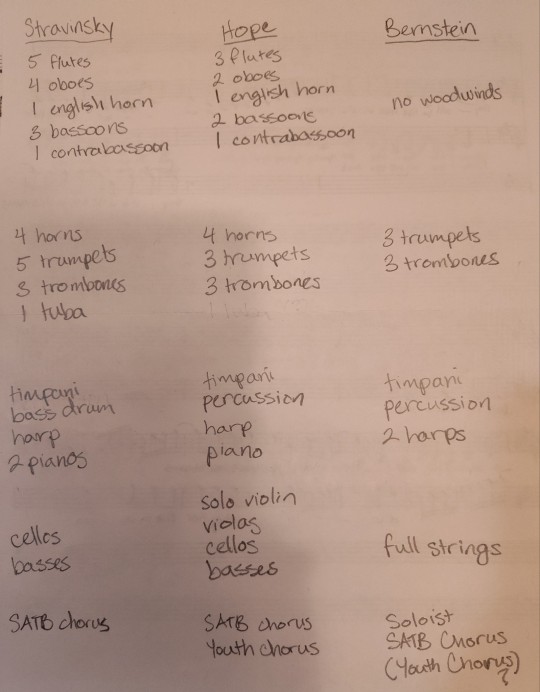 Stravinsky
5 flutes
4 oboes
1 english horn
3 bassoons
1 contrabassoon
4 horns
5 trumpets
3 trombones
1 tuba
timpani
bass drum
harp
2 pianos
cellos
basses
SATB chorus
Hope
3 flutes
2 oboes
1 english horn
2 bassoons
1 contrabassoon
4 horns
3 trumpets
3 trombones
timpani
percussion
harp
piano
solo violin
violas
cellos
basses
SATB chorus
Youth Chorus
Bernstein
no woodwinds
3 trumpets
3 trombones
timpani
percussion
2 harps
full strings
Soloist
SATB Chorus
(Youth Chorus)
?